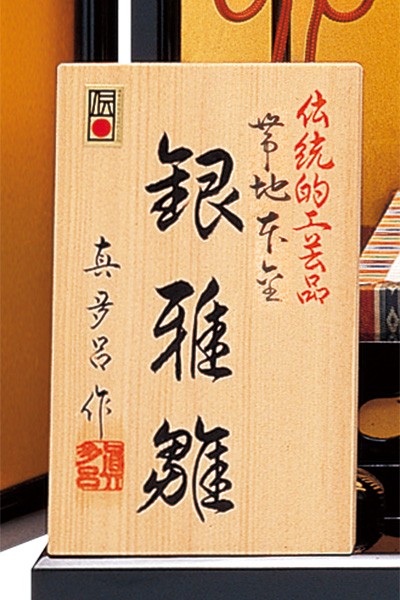 伝統的工芸品
帯地本金
銀雅雛
真多呂作
伝
真多呂